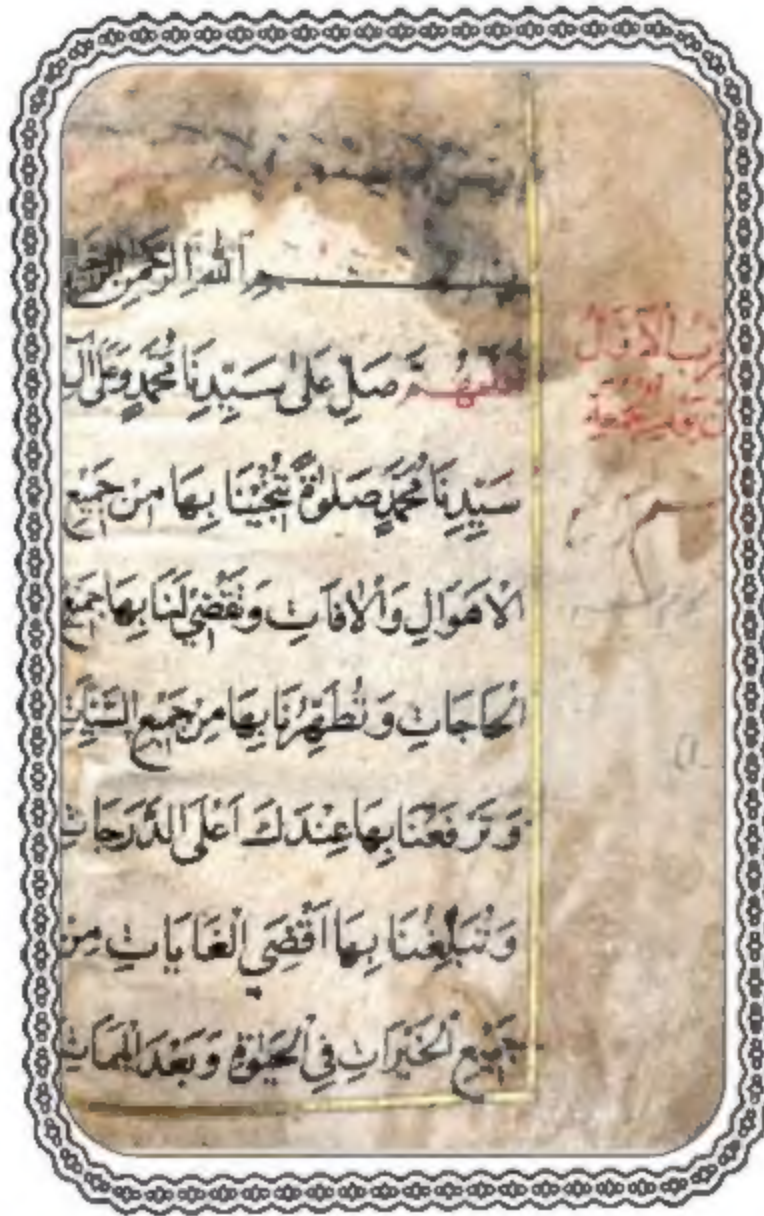 بِسْمِ اللهِ الرَّحْمٰنِ الرَّحِيمِ
اَللّٰهُمَّ صَلِّ عَلٰى سَيِّدِنَا مُحَمَّدٍ وَعَلٰى اٰلِ
سَيِّدِنَا مُحَمَّدٍ صَلٰوةً تُنْجِينَا بِهَا مِنْ جَمِيعِ
الْاَهْوَالِ وَالْاٰفَاتِ وَتَقْضِي لَنَا بِهَا جَمِيعَ
الْحَاجَاتِ وَتُطَهِّرُنَا بِهَا مِنْ جَمِيعِ السَّيِّئَاتِ
وَتَرْفَعُنَا بِهَا عِنْدَكَ اَعْلَى الدَّرَجَاتِ
وَتُبَلِّغُنَا بِهَا اَقْصَي الْغَايَاتِ مِنْ
جَمِيعِ الْخَيْرَاتِ فِي الْحَيٰوةِ وَبَعْدَ الْمَمَاتِ